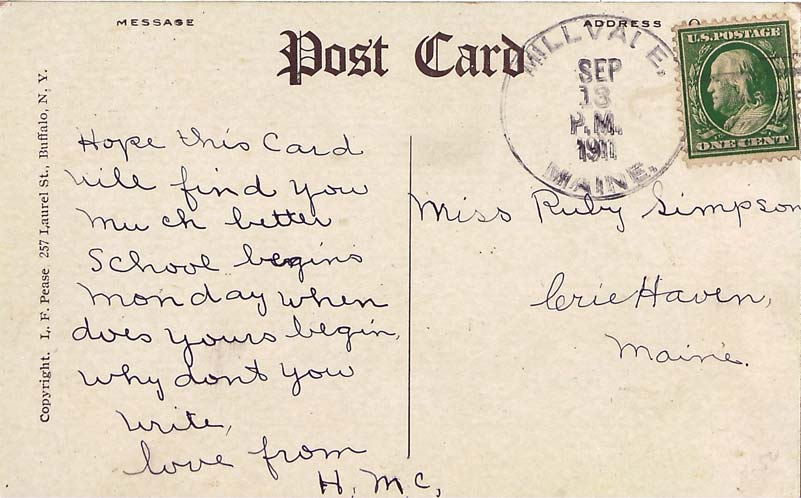 MESSAGE
ADDRESS
Post Card
MILLVALE,
SEP
13
P.M.
1911
MAINE.
U.S. POSTAGE
ONE CENT
Copyright. L. F. Pease 257 Laurel St., Buffalo, N. Y.
Hope this Card
will find you
much better
School begins
monday when
does yours begin,
why dont you
write,
love from
H. Mc,
Miss Ruby Simpson
CrieHaven,
Maine.